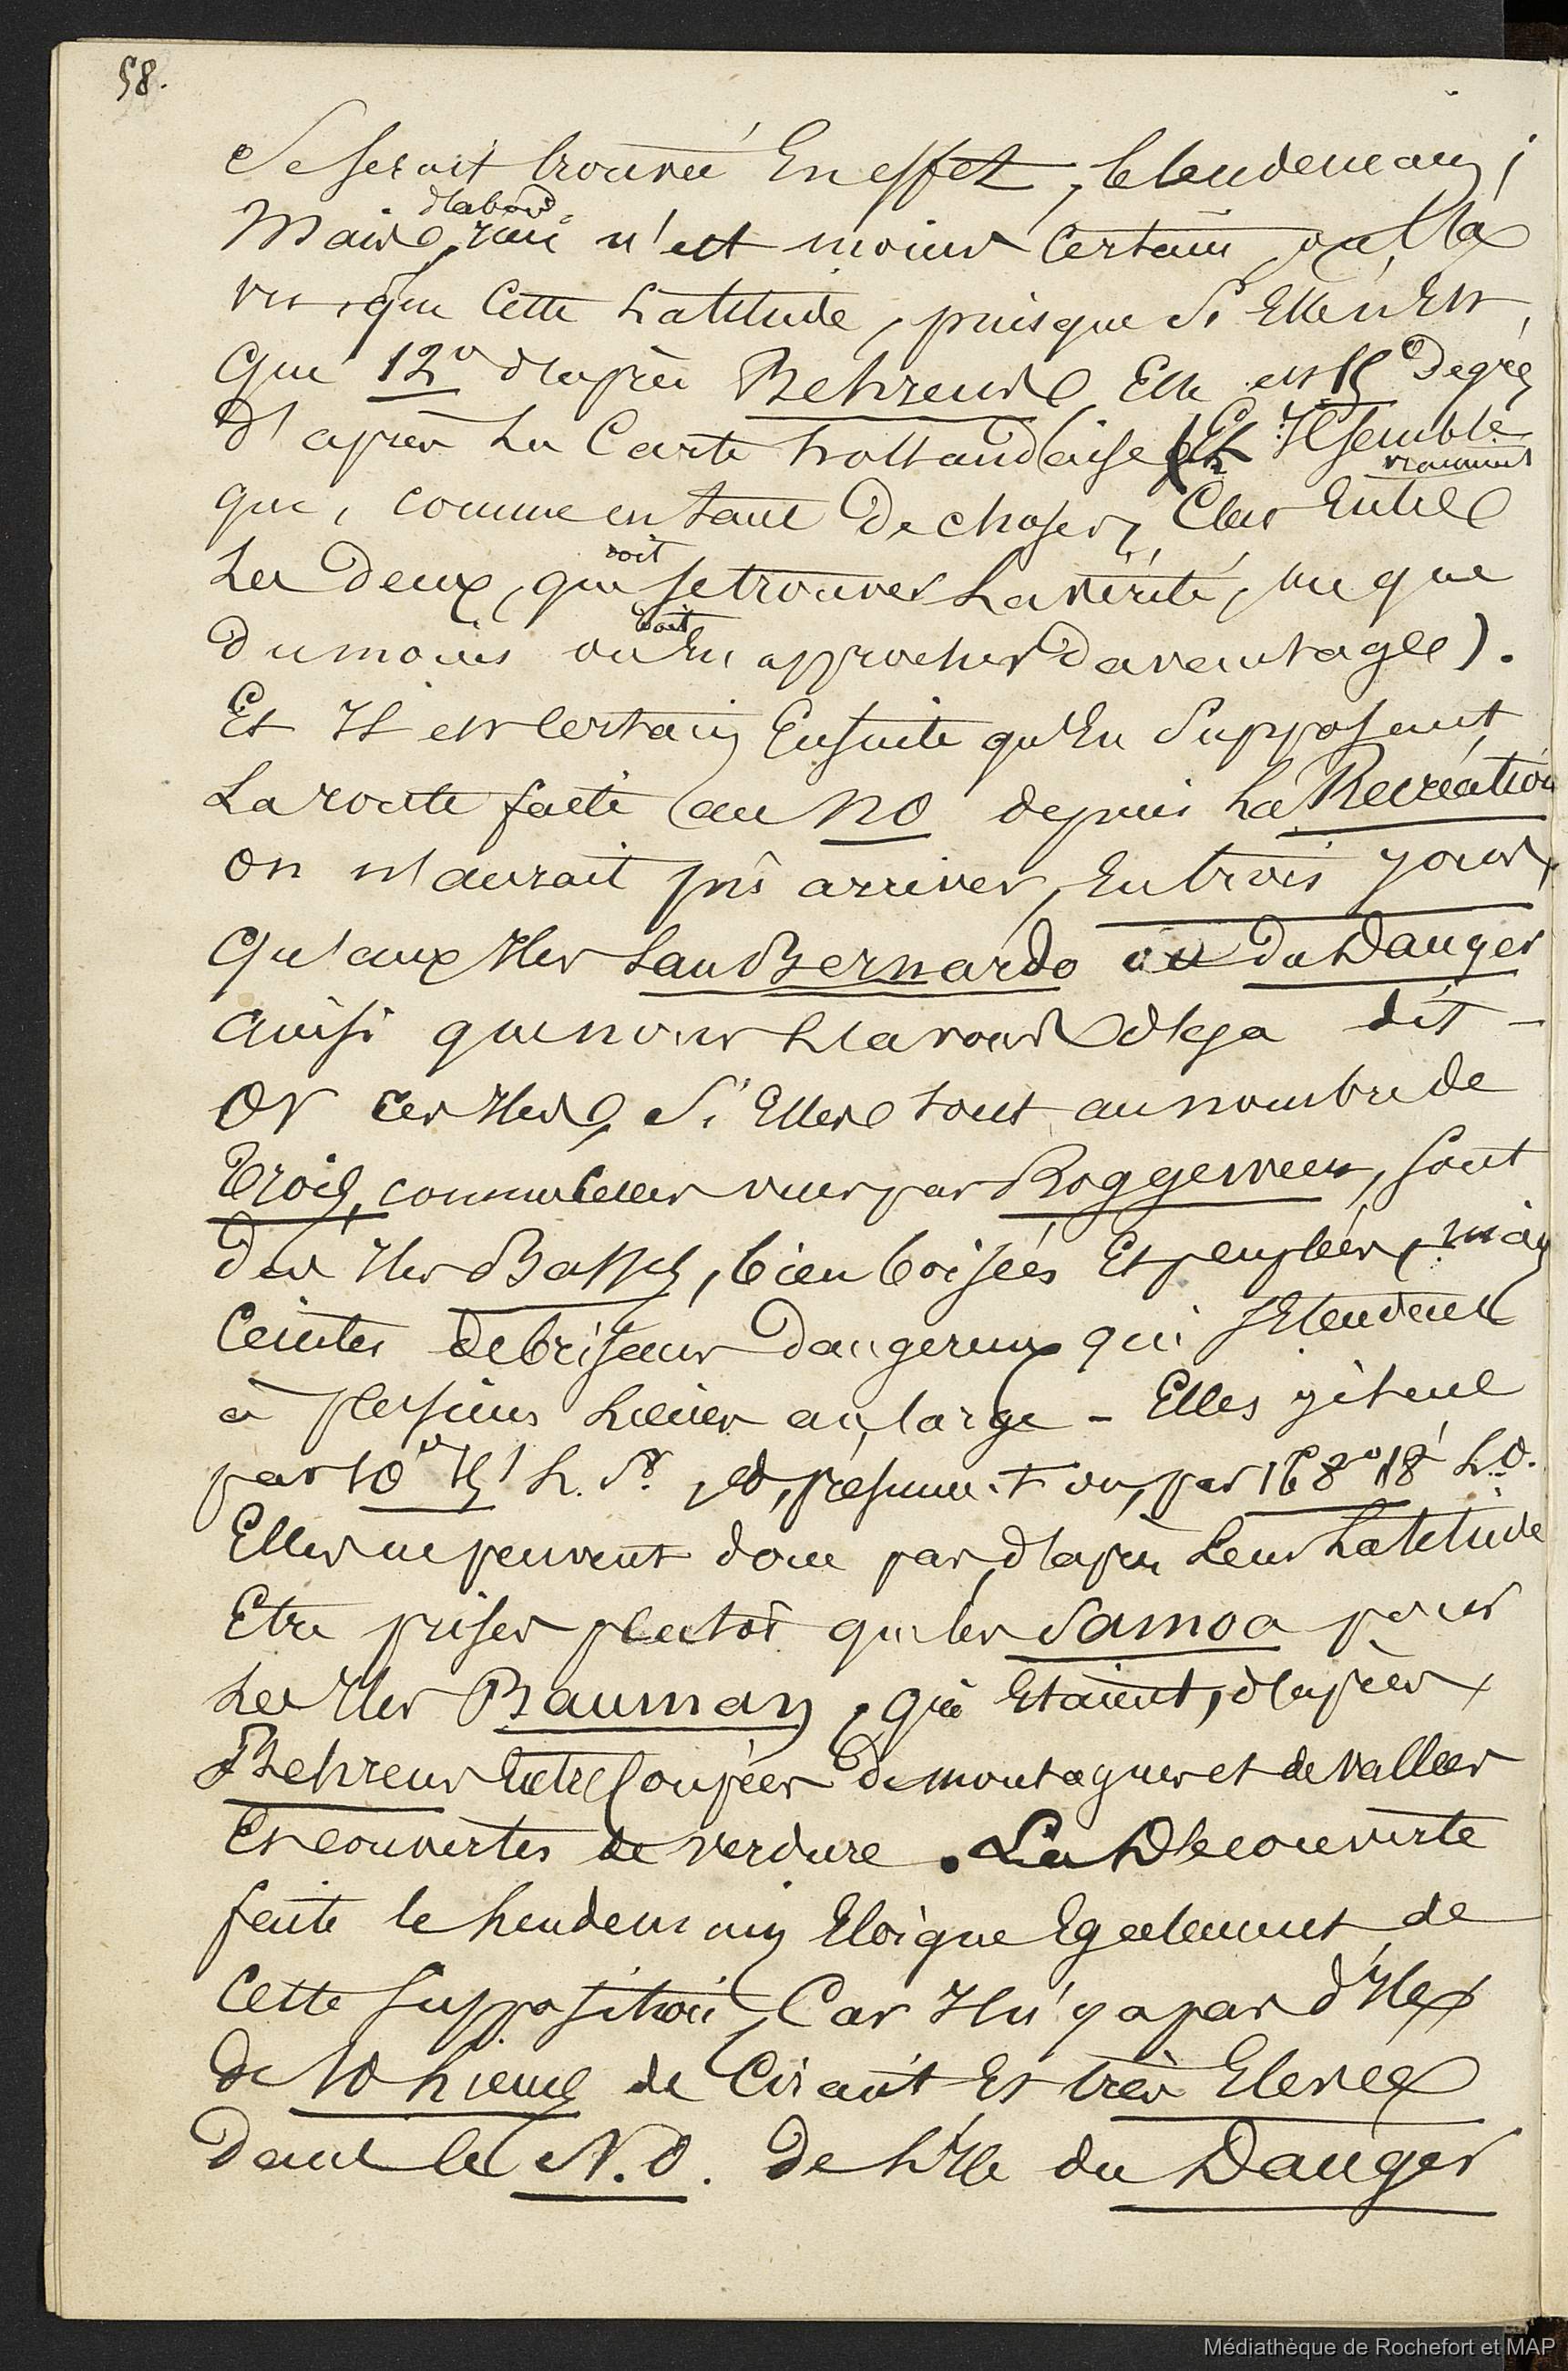 58.
Se serait trouvée En effet, le lendemain;
Mais d'abord rien n'est moins Certain, on l'a
vu, que Cette Latitude, puisque Si Elle n'Est
que 12° d'après Behrens Elle est 15 Degrés
d'après La Carte hollandaise (Et Il semble
que, comme en tant de choses, C'est vraiment Entre
Les Deux, que doit se trouver La vérité, ou que
du moins on doit En approcher Davantage).
Et Il est Certain Ensuite qu'En Supposant
La route faite au NO depuis La Récréation
on n'aurait pû arriver, En trois jours,
Qu'aux Iles San Bernardo ou du Danger
ainsi que nous L'avons déja dit -
Or ces Iles, Si Elles sont au nombre de
Trois, comme celles vues par Roggeween, sont
des Iles Basses, bien boisées Et peuplées, mais
Ceintes de brisans Dangereux qui s'Etendent
à plusieurs Lieues au large - Elles gitent
par 10° 15' L. S. et, présume-t-on, par 168° 18' L.O.
Elles ne peuvent donc pas, d'après Leur Latitude
Etre prises plutôt que les Samoa pour
Les Iles Bauman, qui Etaient, d'après
Behrens Entre Coupées De montagnes et de vallées
Et couvertes de verdure. La Découverte
faite le Lendemain Eloigne Egalement de
Cette Supposition, Car Il n'y a pas d'Iles
De 10 Lieues de Circuit Et très Elevées
Dans le N.O. De L'Ile du Danger
Médiathèque de Rochefort et MAP